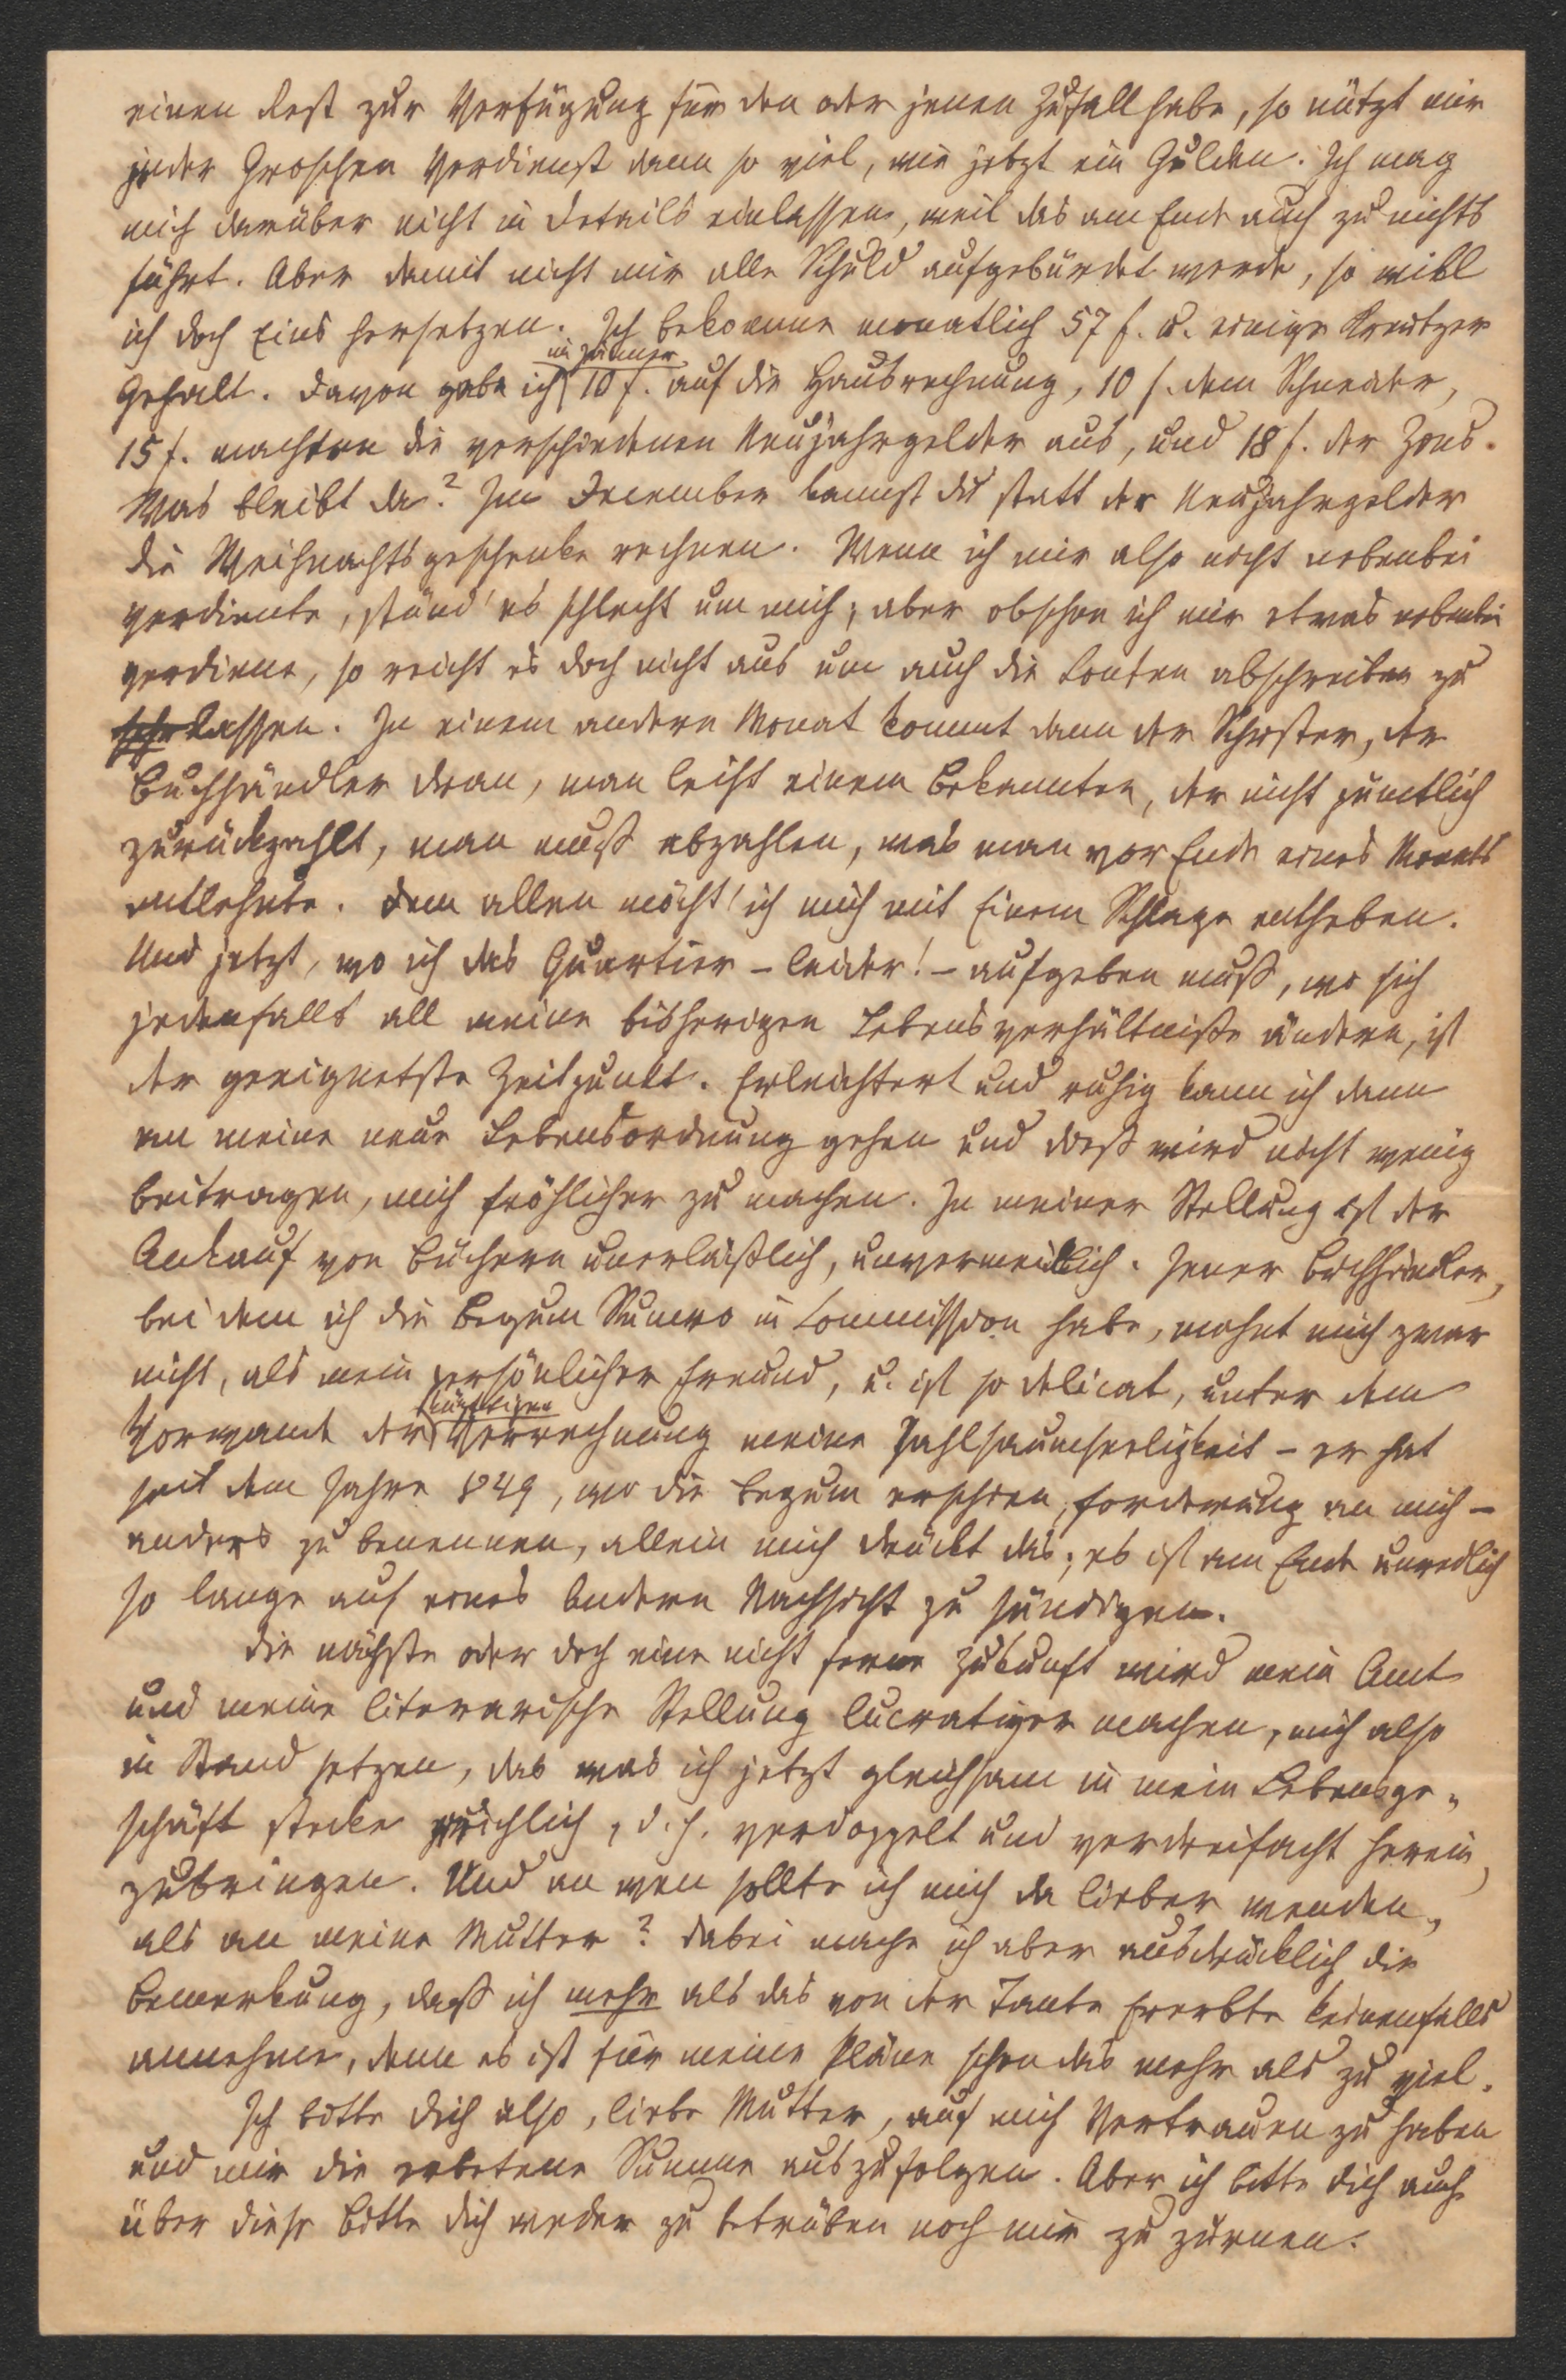 einen Rest zur Verfügung für den oder jenen Zufall habe, so nützt mir
jeder Groschen Verdienst dann so viel, wie jetzt ein Gulden. Ich mag
mich darüber nicht in Details einlassen, weil das am Ende auch zu nichts
führt. Aber damit nicht mir alle Schuld aufgebürdet werde, so will
ich doch Eins hersetzen. Ich bekomme monatlich 57 f. u. einige Kreutzer
im Jänner
Gehalt. Davon gebe ich 10 f. auf die Hausrechnung, 10 f. dem Schneider,
15 f. machten die verschiedenen Neujahrgelder aus, und 18 f. der Zins.
Was bleibt da? Im December kannst du statt der Neujahrgelder
die Weihnachtsgeschenke rechnen. Wenn ich mir also nicht nebenbei
verdiente, ständ' es schlecht um mich; aber obschon ich mir etwas nebenbei
verdiene, so reicht es doch nicht aus um auch die Conten abschreiben zu
lassen. In einem andern Monat kommt dann der Schuster, der
Buchhändler dran, man leiht einem Bekannten, der nicht pünctlich
zurückzahlt, man muß abzahlen, was man vor Ende eines Monats
entlehnte. Dem allen möcht' ich mich mit Einem Schlage entheben.
Und jetzt, wo ich das Quartier – leider! – aufgeben muß, wo sich
jedenfalls all meine bisherigen Lebensverhältniße ändern, ist
der geeignetste Zeitpunkt. Erleichtert und ruhig kann ich dann
an meine neue Lebensordnung gehen und dieß wird nicht wenig
beitragen, mich fröhlicher zu machen. In meiner Stellung ist der
Ankauf von Büchern unerläßlich, unvermeidlich. Jener Buchhändler,
bei dem ich die Begum Sumro in Commission habe, mahnt mich zwar
nicht, als mein persönlicher Freund, u. ist so delicat, unter dem
künftigen
Vorwande der Verrechnung meine Zahlsaumseeligkeit – er hat
seit dem Jahre 1849, wo die Begum erschien, Forderung an mich –
anders zu benennen, allein mich drückt das; es ist am Ende unredlich
so lange auf eines Andern Nachsicht zu sündigen.
Die nächste oder doch eine nicht ferne Zukunft wird mein Amt
und meine literarische Stellung lucrativer machen, mich also
in Stand setzen, das was ich jetzt gleichsam in mein Lebensge-
schäft stecke reichlich, d. h. verdoppelt und verdreifacht herein
zubringen. Und an wen sollte ich mich da lieber wenden,
als an meine Mutter? Dabei mache ich aber ausdrücklich die
Bemerkung, daß ich mehr als das von der Tante Ererbte keinenfalls
annehme, denn es ist für meine Pläne schon das mehr als zu viel.
Ich bitte dich also, liebe Mutter, auf mich Vertrauen zu haben
und mir die erbetene Summe auszufolgen. Aber ich bitte dich auch
über diese Bitte dich weder zu betrüben noch mir zu zürnen.